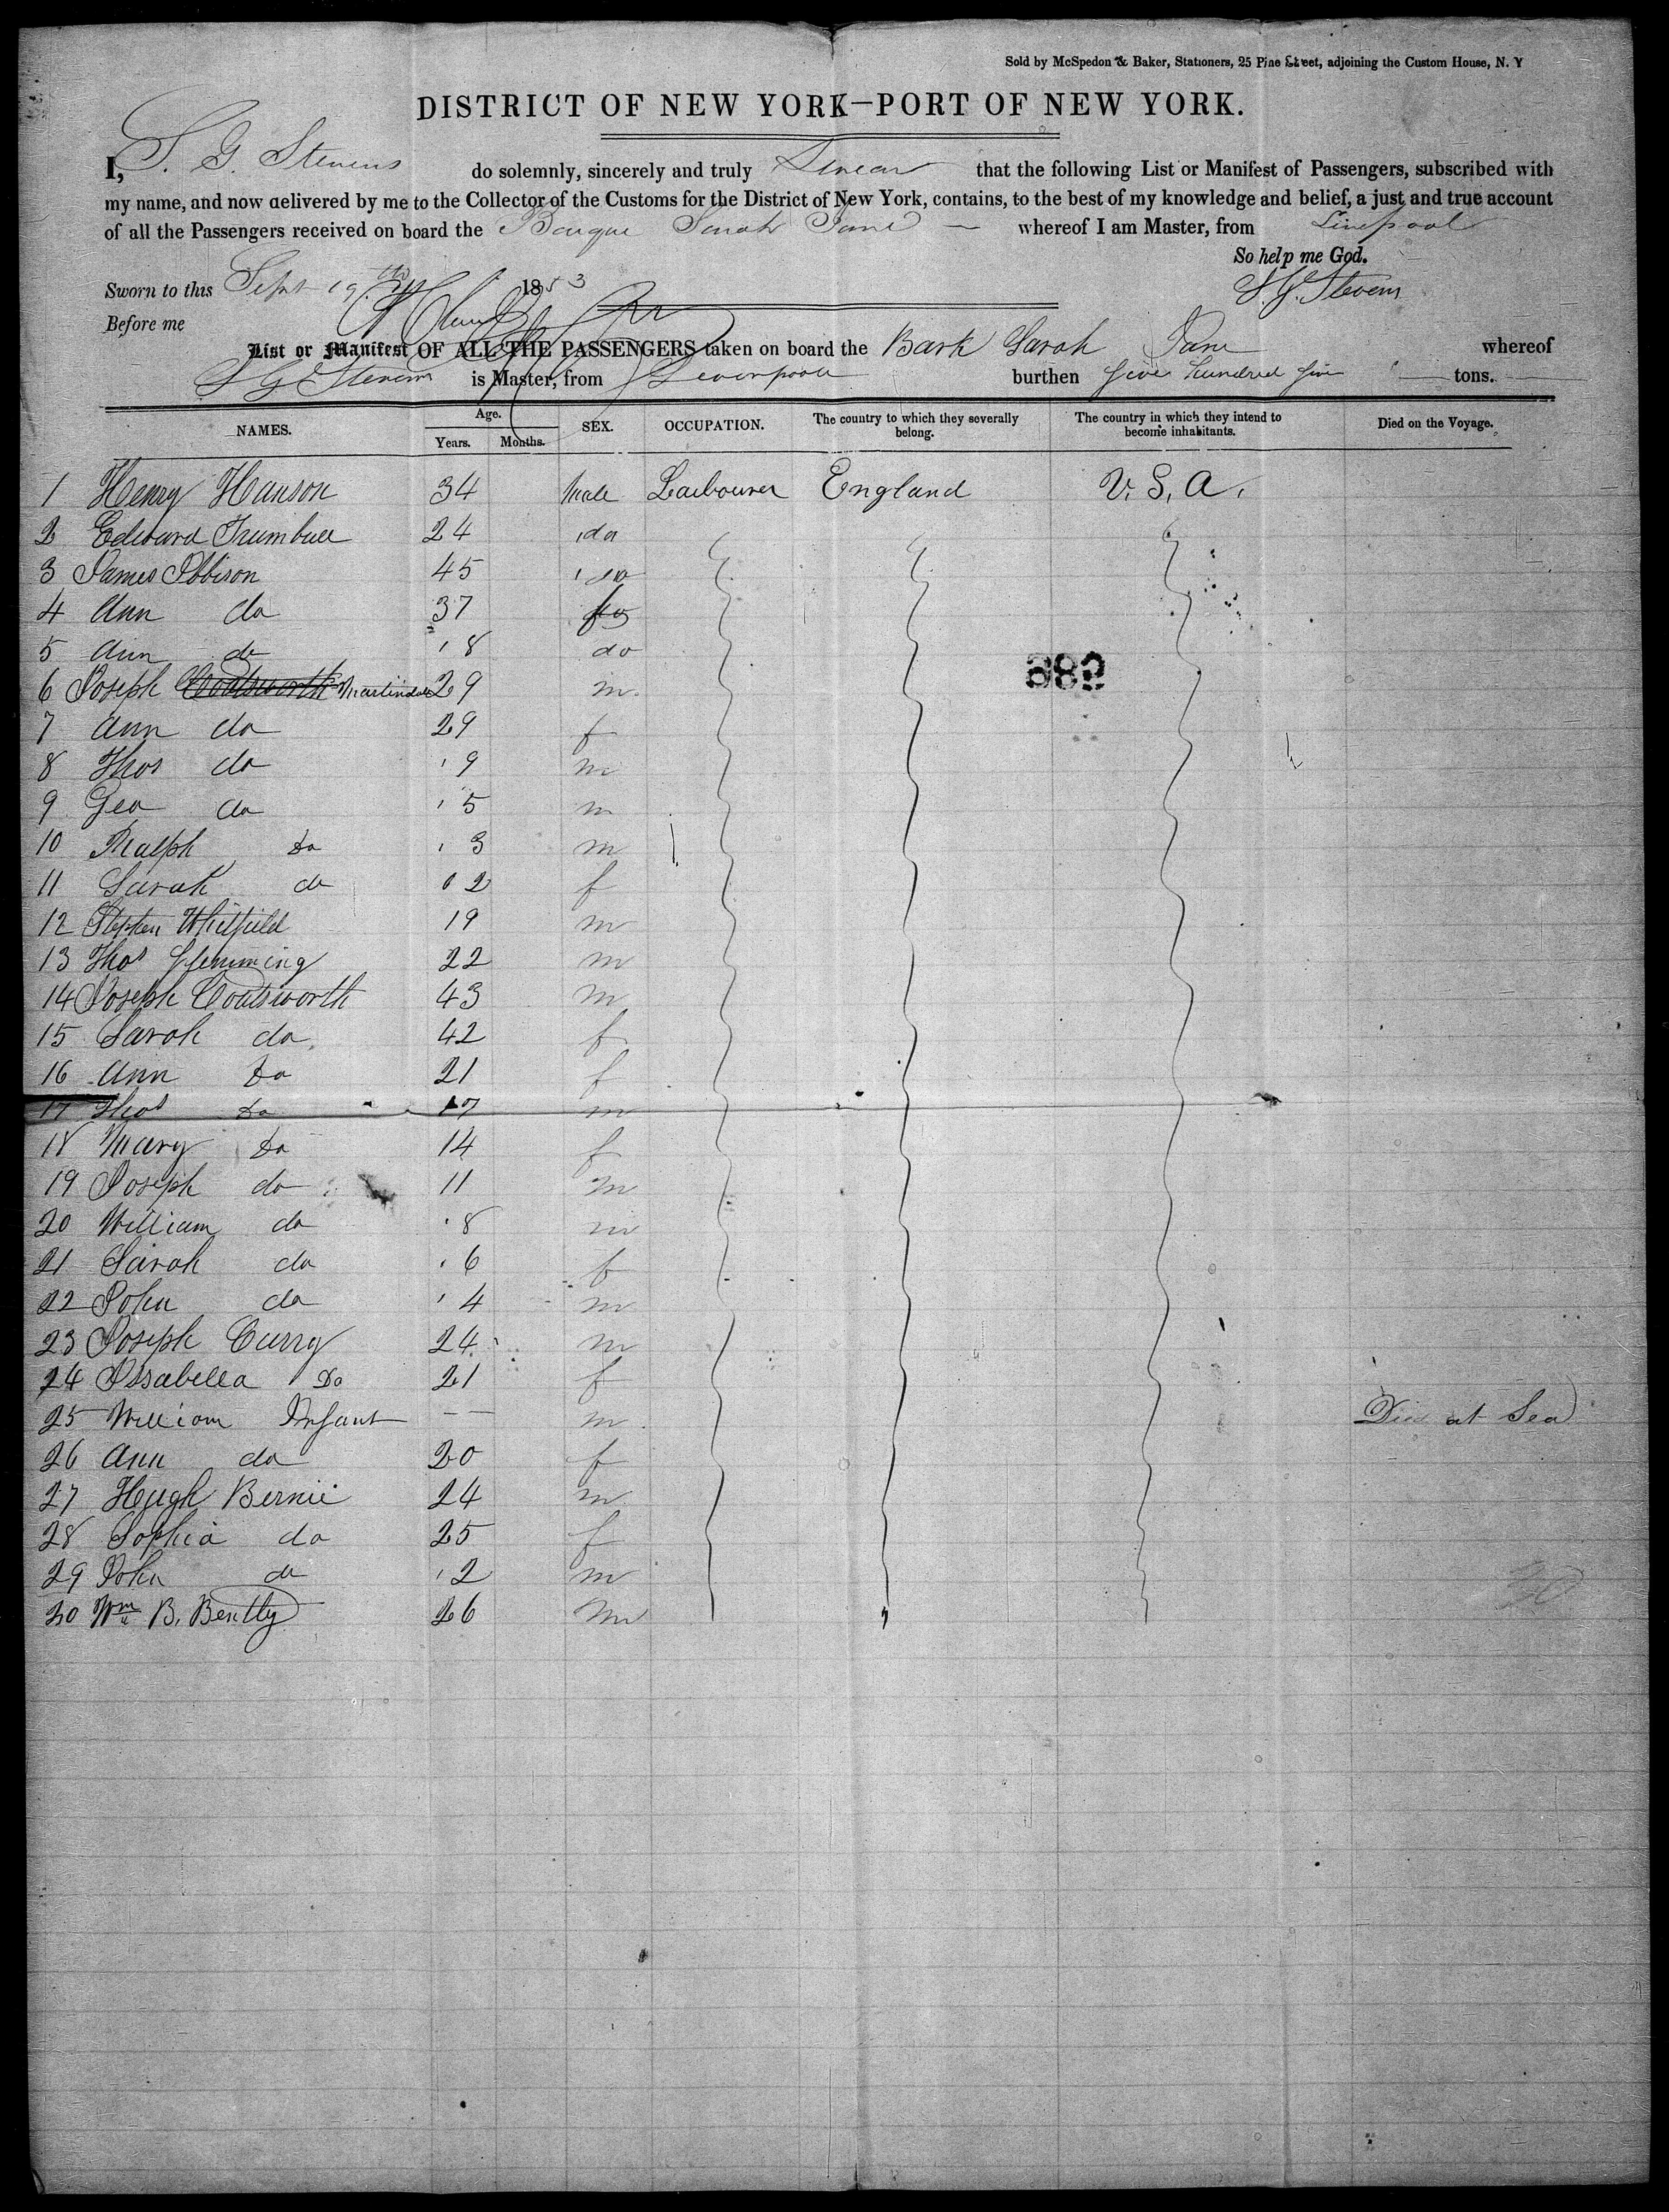 Sold by McSpedon & Baker, Stationers, 25 Pine Street, adjoining the Custom House, N. Y
DISTRICT OF NEW YORK—PORT OF NEW YORK.
I, S. G. Stevens do solemnly, sincerely and truly Swear that the following List or Manifest of Passengers, subscribed with
my name, and now delivered by me to the Collector of the Customs for the District of New York, contains, to the best of my knowledge and belief, a just and true account
of all the Passengers received on board the Barque Sarah Jane — whereof I am Master, from Liverpool
So help me God.
Sworn to this Sept 19th 1853 S. G. Stevens
Before me
List or Manifest OF ALL THE PASSENGERS taken on board the Bark Sarah Jane whereof
S G Stevens is Master, from Liverpool burthen five hundred five tons.
NAMES. Age. Years. Months. SEX. OCCUPATION. The country to which they severally belong. The country in which they intend to become inhabitants. Died on the Voyage.
1 Henry Hanson 34 Male Laibourer England U. S. A.
2 Edward Trumbull 24 do
3 James Ibbison 45 do
4 Ann do 37
5 Ann do 8 do
6 Joseph Coatsworth Martindale 29 m
7 Ann do 29 f
8 Thos do 9 m
9 Geo do 5 m
10 Ralph Do 3 m
11 Sarah do 2 f
12 Stephen Whitfield 19 m
13 Thos Flemming 22 m
14 Joseph Coatsworth 43 m
15 Sarah do 42 f
16 Ann Do 21 f
17 Thos Do 17 m
18 Mary Do 14 f
19 Joseph do 11 m
20 William do 8 m
21 Sarah do 6 f
22 John do 4 m
23 Joseph Curry 24 m
24 Issabella Do 21 f
25 William Infant — — m Died at Sea
26 Ann do 20 f
27 Hugh Bernie 24 m
28 Sophia do 25 f
29 John do 2 m
30 Wm B. Bently 26 m
30